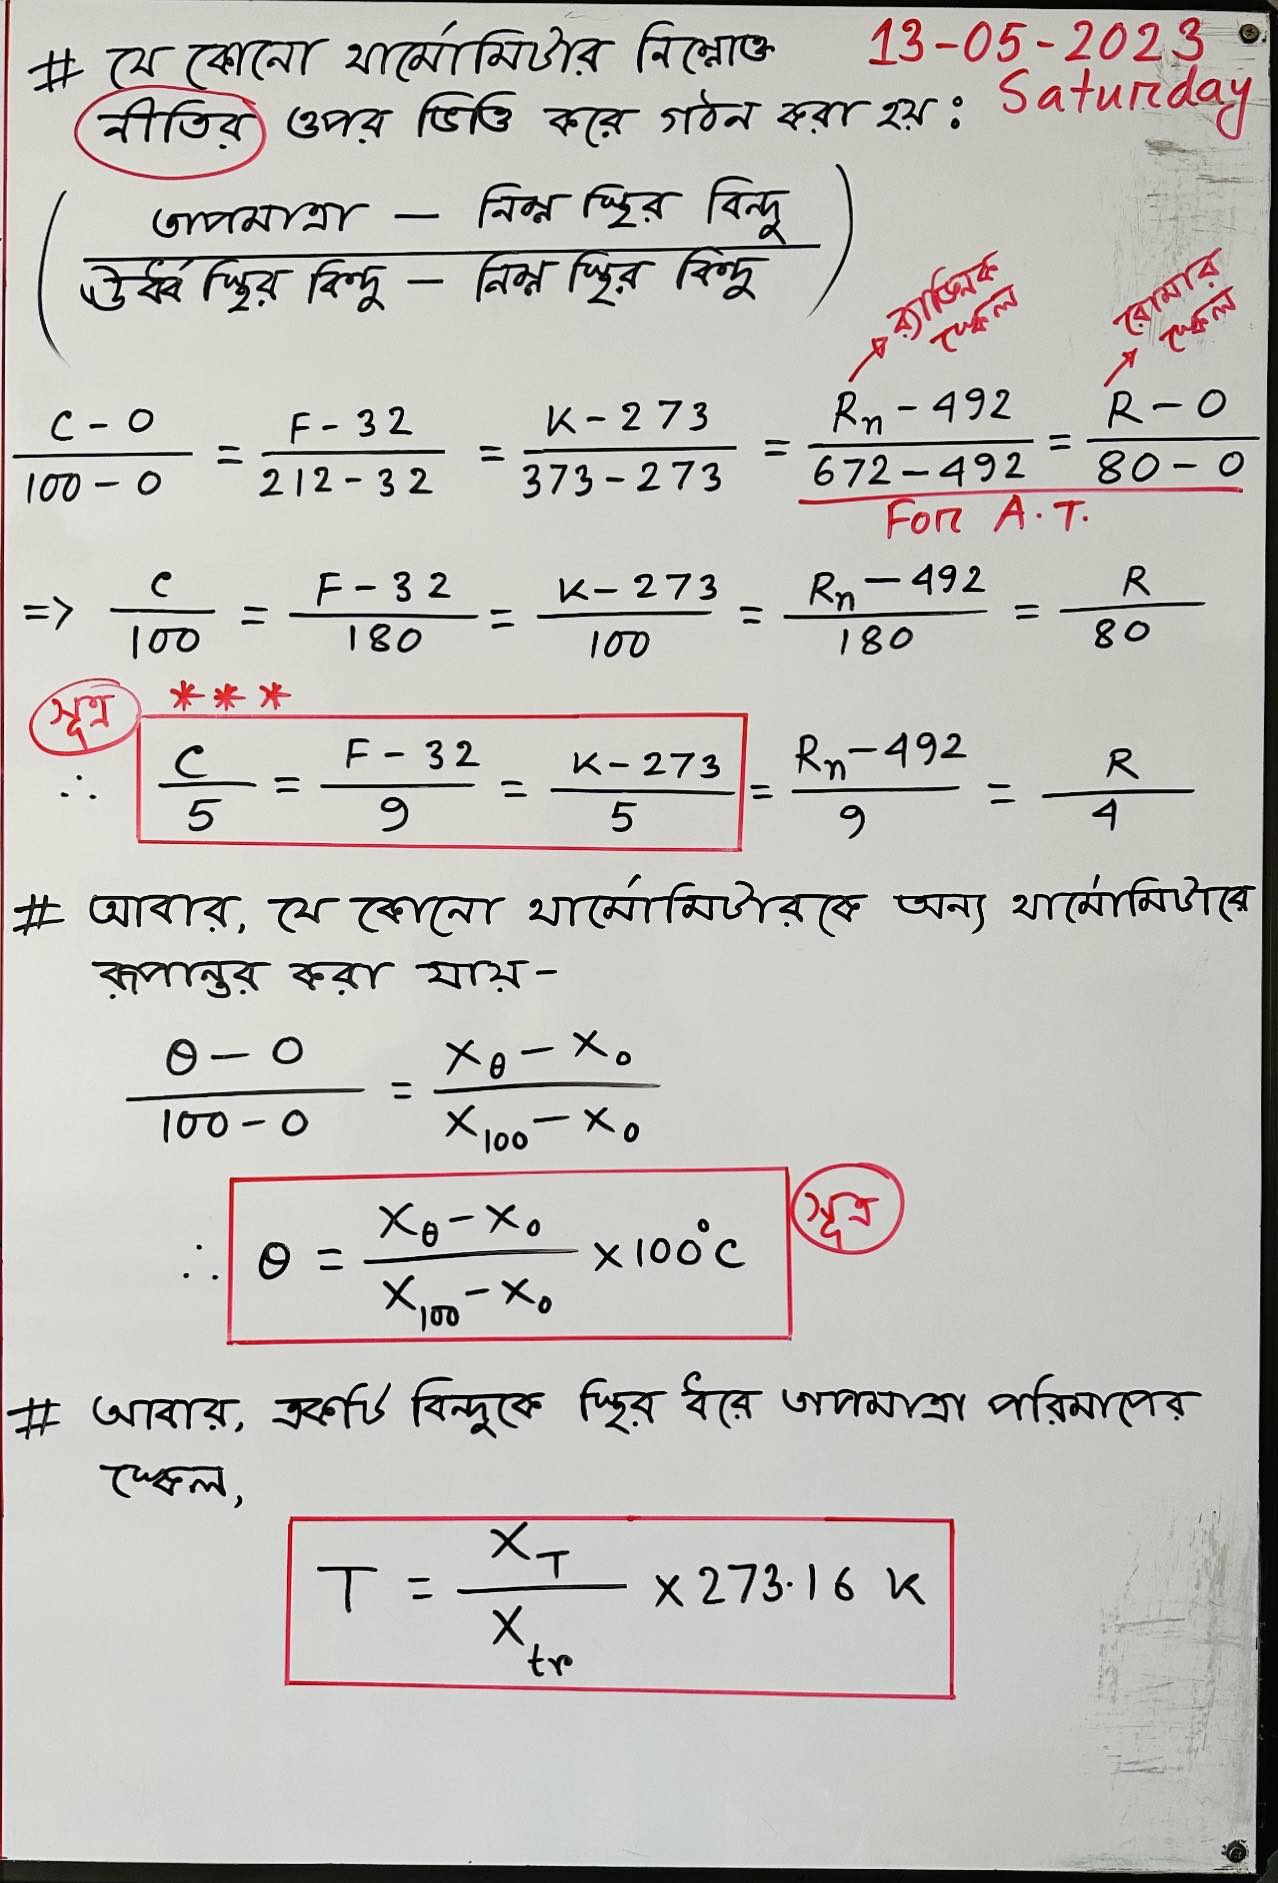 # যে কোনো থার্মোমিটার নিম্নোক্ত 13-05-2023
Saturday
নীতির ওপর ভিত্তি করে গঠন করা হয়:
(তাপমাত্রা — নিম্ন স্থির বিন্দু / ঊর্ধ্ব স্থির বিন্দু — নিম্ন স্থির বিন্দু)
র‍্যাঙ্কিন স্কেল
রোমার স্কেল
(C - 0)/(100 - 0) = (F - 32)/(212 - 32) = (K - 273)/(373 - 273) = (Rₙ - 492)/(672 - 492) = (R - 0)/(80 - 0)
For A.T.
=> C/100 = (F - 32)/180 = (K - 273)/100 = (Rₙ - 492)/180 = R/80
সূত্র ***
∴ C/5 = (F - 32)/9 = (K - 273)/5 = (Rₙ - 492)/9 = R/4
# আবার, যে কোনো থার্মোমিটারকে অন্য থার্মোমিটারে
রূপান্তর করা যায় -
(θ - 0)/(100 - 0) = (X_θ - X₀)/(X₁₀₀ - X₀)
∴ θ = (X_θ - X₀)/(X₁₀₀ - X₀) × 100°C সূত্র
# আবার, একটি বিন্দুকে স্থির ধরে তাপমাত্রা পরিমাপের
স্কেল,
T = X_T/X_tr × 273.16 K